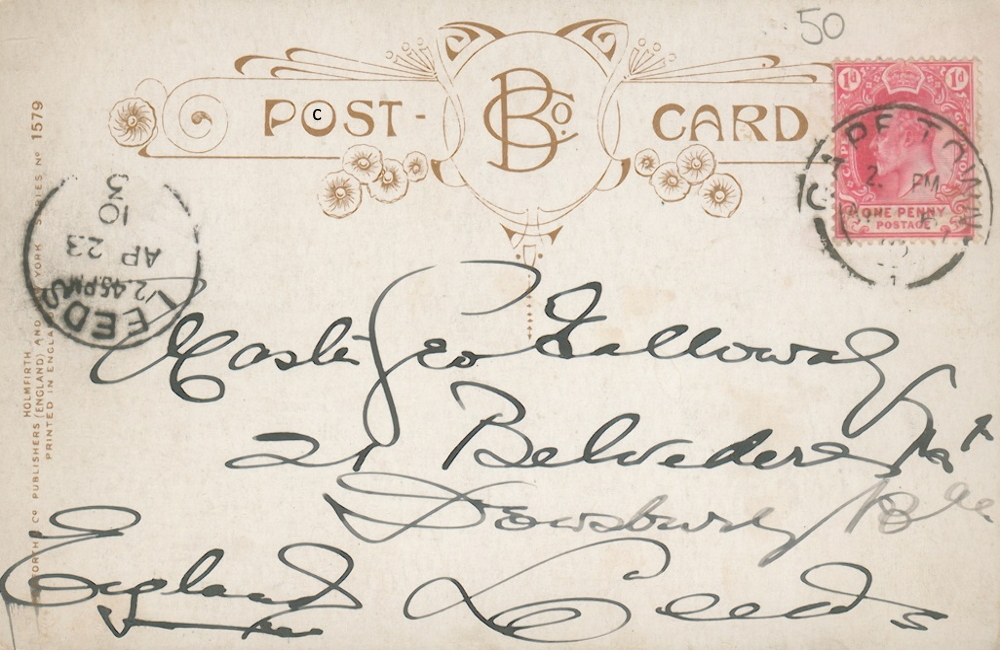 50
POST- BCo. CARD
c
1d 1d
ONE PENNY
POSTAGE
PE TOWN
2. PM
LEEDS
2.45 PM
AP 23
10
3
Master Geo Galloway
21 Belvedere Mt
Dewsbury
England Leeds
HOLMFIRTH
ORTH & Co PUBLISHERS (ENGLAND) AND YORK SERIES No 1579
PRINTED IN ENGLA